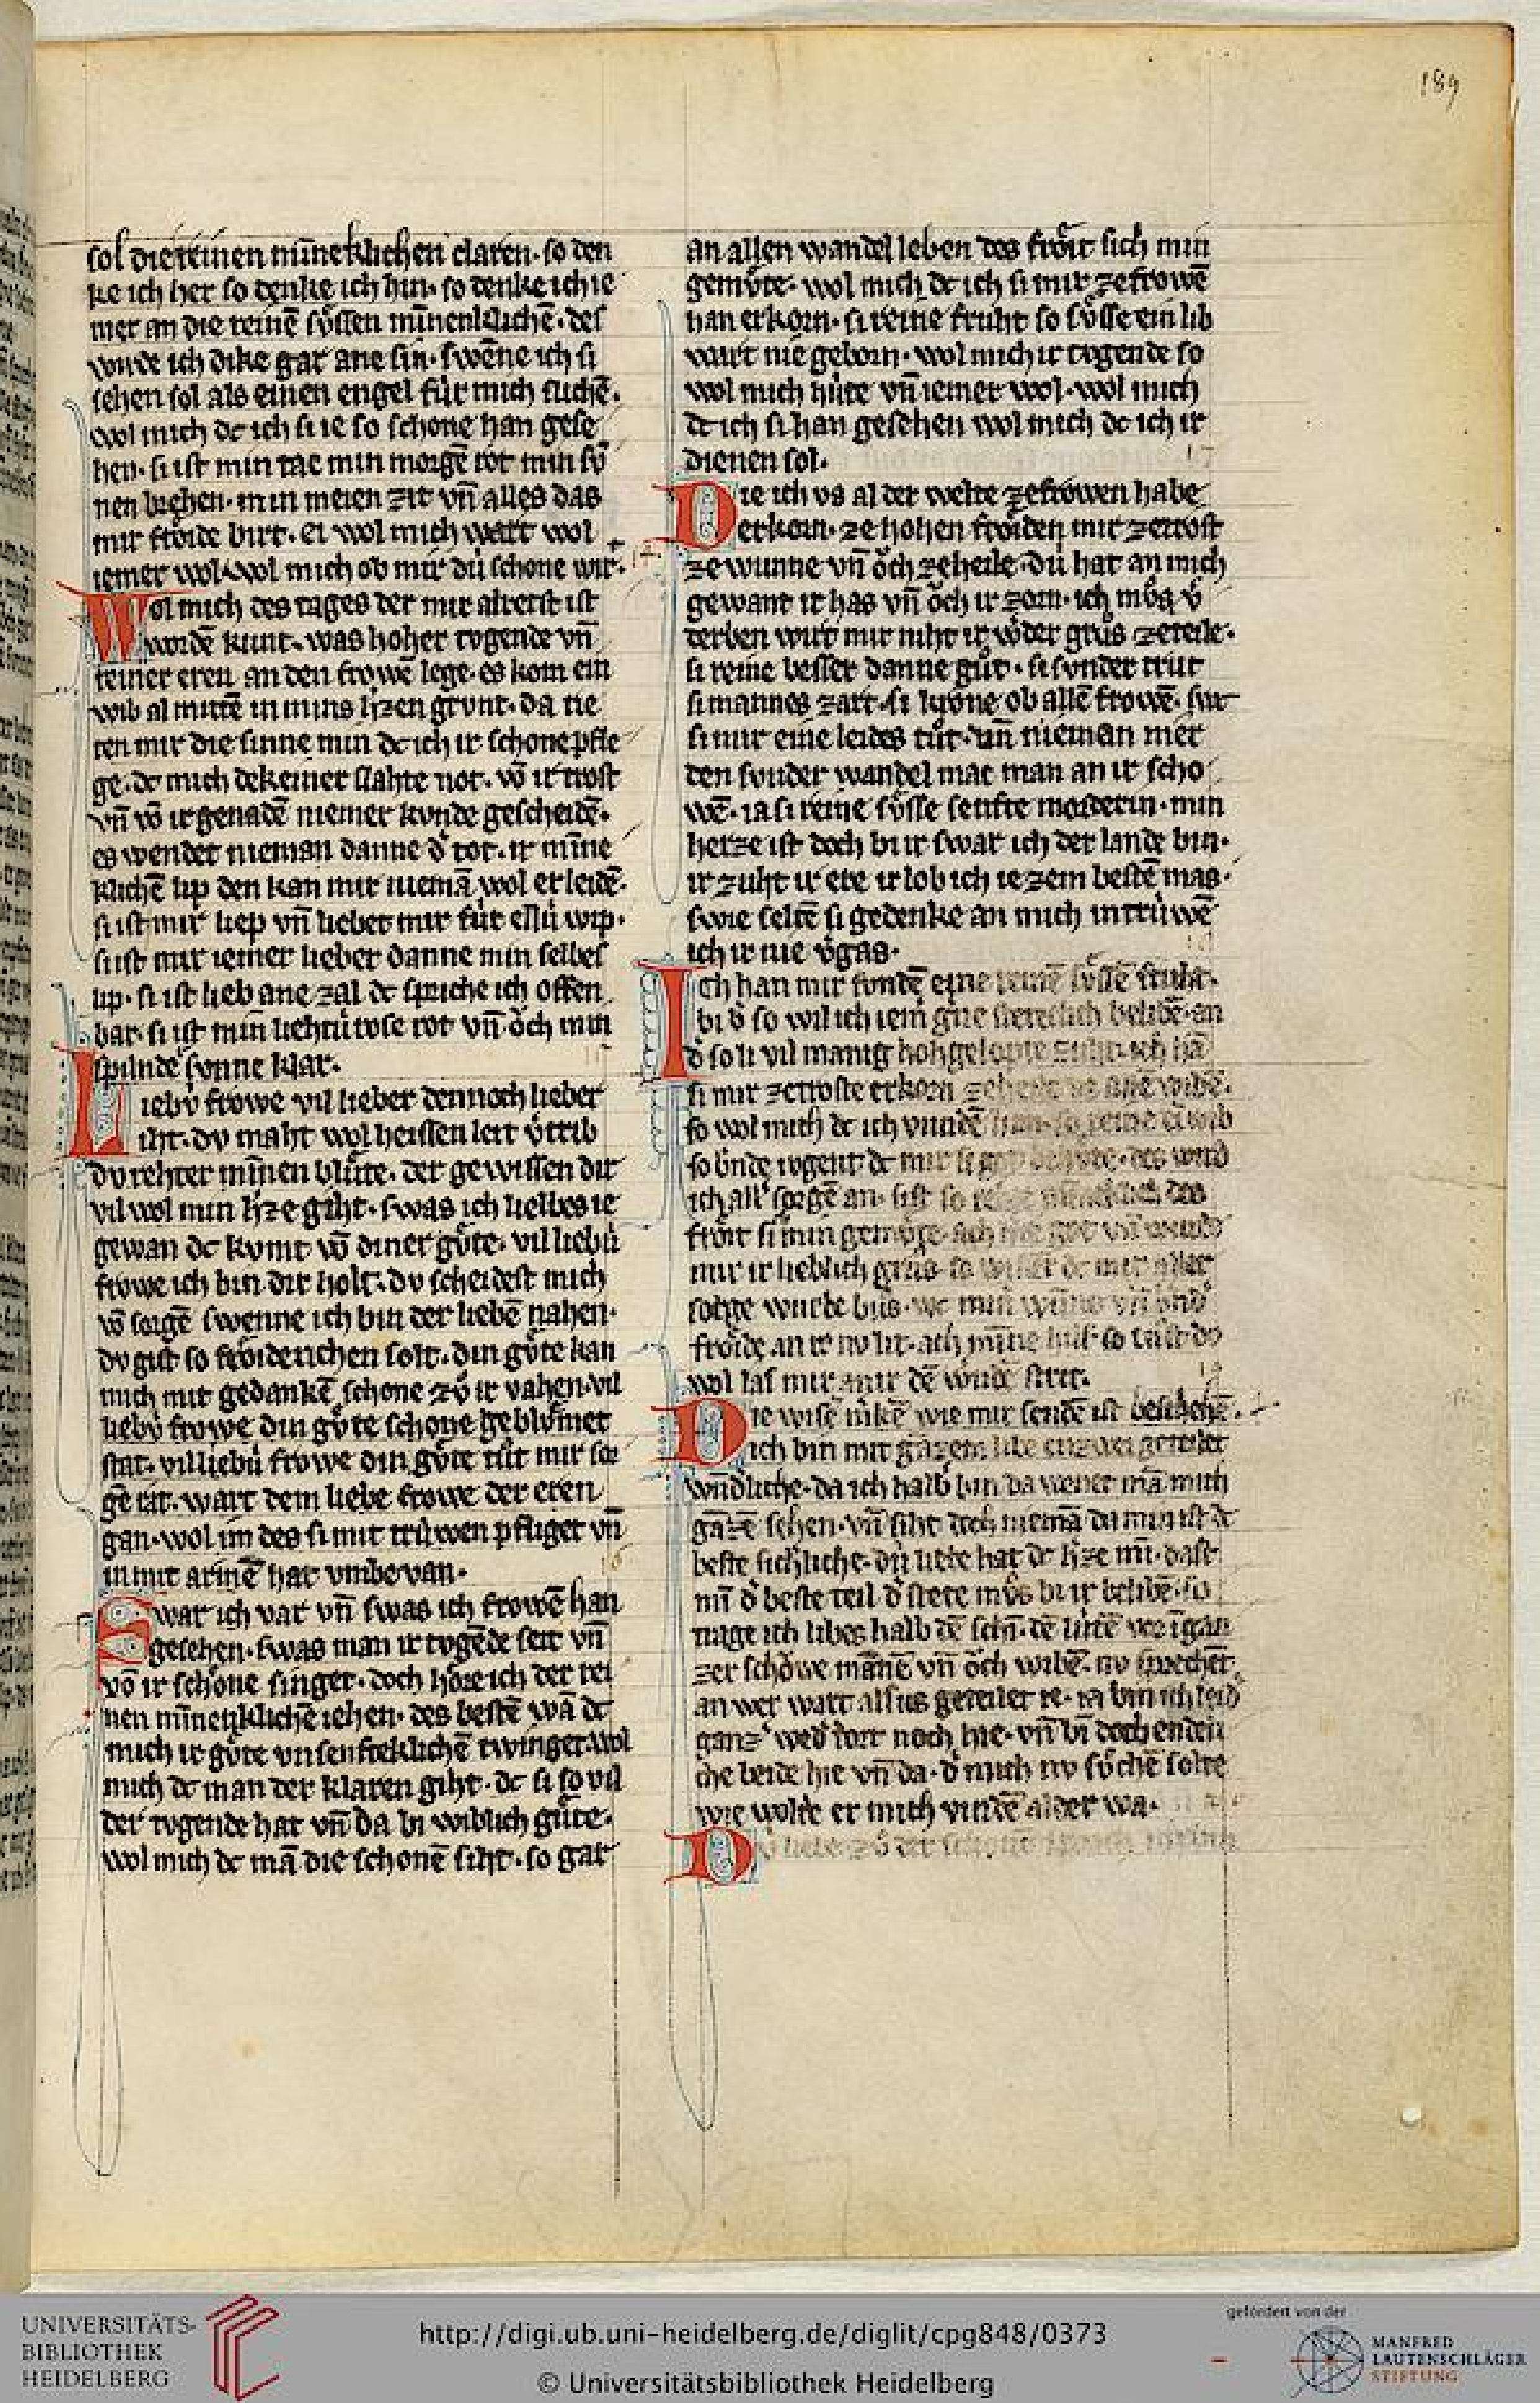 189
sol die reinen mīneklichen claren· so den
ke ich her so denke ich hin· so denke ich ie
mer an die reinē sv̊ssen mīnenklichē· des
wurde ich dike gar ane sin· swēne ich si
sehen sol als einen engel fúr mich sliche̅·
wol mich dc ich si ie so schone han gese
hen· si ist min tac min morgē rot min sv̄
nen brehen· min meien zit vn̄ alles das
mir frôide birt· ei wol mich wart wol
iemer wol· wol mich ob mir dú schone wir·
Wol mich des tages der mir alrerst ist
wordē kunt· was hoher tvgende vn̄
reiner eren an den frowē lege· es kom ein
wib al mittē in mins h̄zen grvnt· da rie
ten mir die sinne min dc ich ir schone pfle
ge· dc mich dekeiner slahte not· vō ir trost
vn̄ vō ir genadē niemer kvnde gescheidē·
es wendet nieman danne d̾ tot· ir mīne
klichē lip den kan mir niemā wol erleidē·
si ist mir liep vn̄ lieber mir fúr ellú wip·
sist mir iemer lieber danne min selbes
lip· si ist lieb ane zal dc spriche ich offen
bar· si ist min liehtú rose rot vn̄ ôch min
spilnde sonne klar·
Liebv̍ frowe vil lieber dennoch lieber
iht· dv maht wol heissen leit v̾trib
dv rehter mīnen blůte· der gewissen dir
vil wol min h̄ze giht· swas ich liebes ie
gewan dc kvmt vō diner gv̊te· vil liebú
frowe ich bin dir holt· dv scheidest mich
vō sorgē swenne ich bin der liebē nahen·
dv gist so frôiderichen solt· din gv̊te kan
mich mit gedankē schone zv̊ ir vahen· vil
liebv̍ frowe din gv̊te schone geblv̊met
stat· vil liebú frowe din gv̊te tůt mir sor
gē rat· wart dem liebe frowe der eren
gan· wol im des si mit trúwen pfliget vn̄
in mit armē hat vmbevan·
Swar ich var vn̄ swas ich frowē han
gesehen· swas man ir tvgēde seit vn̄
vō ir schône singet· doch hôre ich der rei
nen mīnenklichē iehen· des bestē wā dc
mich ir gv̊te vn senfteklichē twinget· wol
mich dc man der klaren giht· dc si so vil
der tvgende hat vn̄ da bi wiblich gůte·
wol mich dc mā die schonē siht· so gar
an allen wandel leben des frôit sich min
gemv̊te· wol mich dc ich si mir ze frowē
han erkorn· si reine fruht so sv̊sse ein lib
wart nie geborn· wol mich ir tvgende so
wol mich húte vn̄ iemer wol· wol mich
dc ich si han gesehen wol mich dc ich ir
dienen sol·
Die ich vs al der welte ze frowen habe
erkorn· ze hohen frôiden mir ze trost
ze wunne vn̄ ôch ze heile· dú hat an mich
gewant ir has vn̄ ôch ir zorn· ich mv̊s v̾
derben wirt mir niht ir wôder grůs ze teile·
si reine besser danne gůt· si svnder trut
si mannes zart· si krône ob allē frowē· swc
si mir eine leides tůt· vn̄ nieman mer
den svnder wandel mac man an ir scho
wē· ia si reine sv̊sse senfte morderin· min
herze ist doch bi ir swar ich der lande bin·
ir zuht ir ere ir lob ich ie zem bestē mas·
swie seltē si gedenke an mich in trúwē
ich ir nie v̾gas·
Ich han mir fondē eine reinē sv̊ssē fruht·
bi d̾ so wil ich iem̄ gne stetelich belibē· an
d̾ so li vil manig hohgelopte zuht· ich hā
si mir ze troste erkorn
so wol mich dc ich vundē han so reine ei wib
ich all̾ sorgē an· sist so
frôit si min gemv̊te·
mir ir lieblich grůs·
sorge wurde bůs·
frôide an ir nv lit· ach mīne hilf so tůst dv
wol las mir an ir dē
Die wisē mkē wie mir sendē ist beschehē·
ich bin mit gāzem libe enzwei geteilet
wn̄dliche· da ich halb bin da wenet mā mich
gāzē sehen· vn̄ siht doch niemā da min ist dc
beste sichliche· dú liebe hat dc h̄ze mī· dast
mī d̾ beste teil d̾ stete mv̊s bi ir belibē· so
trage ich libes halb dē schī· dē lútē vor ī gan
zer schôwe mānē vn̄ ôch wibē· nv sprechēt
an wer wart alsus geteilet ie· ia bin ich leid̾
ganz̾ wed̾ dort noch hie· vn̄ bī doch endeli
che beide hie vn̄ da· d̾ mich nv sv̊chē solte
wie wolte er mich vindē alder wa·
D
UNIVERSITÄTS-
BIBLIOTHEK
HEIDELBERG
http://digi.ub.uni-heidelberg.de/diglit/cpg848/0373
© Universitätsbibliothek Heidelberg
gefördert von der
MANFRED
LAUTENSCHLÄGER
STIFTUNG